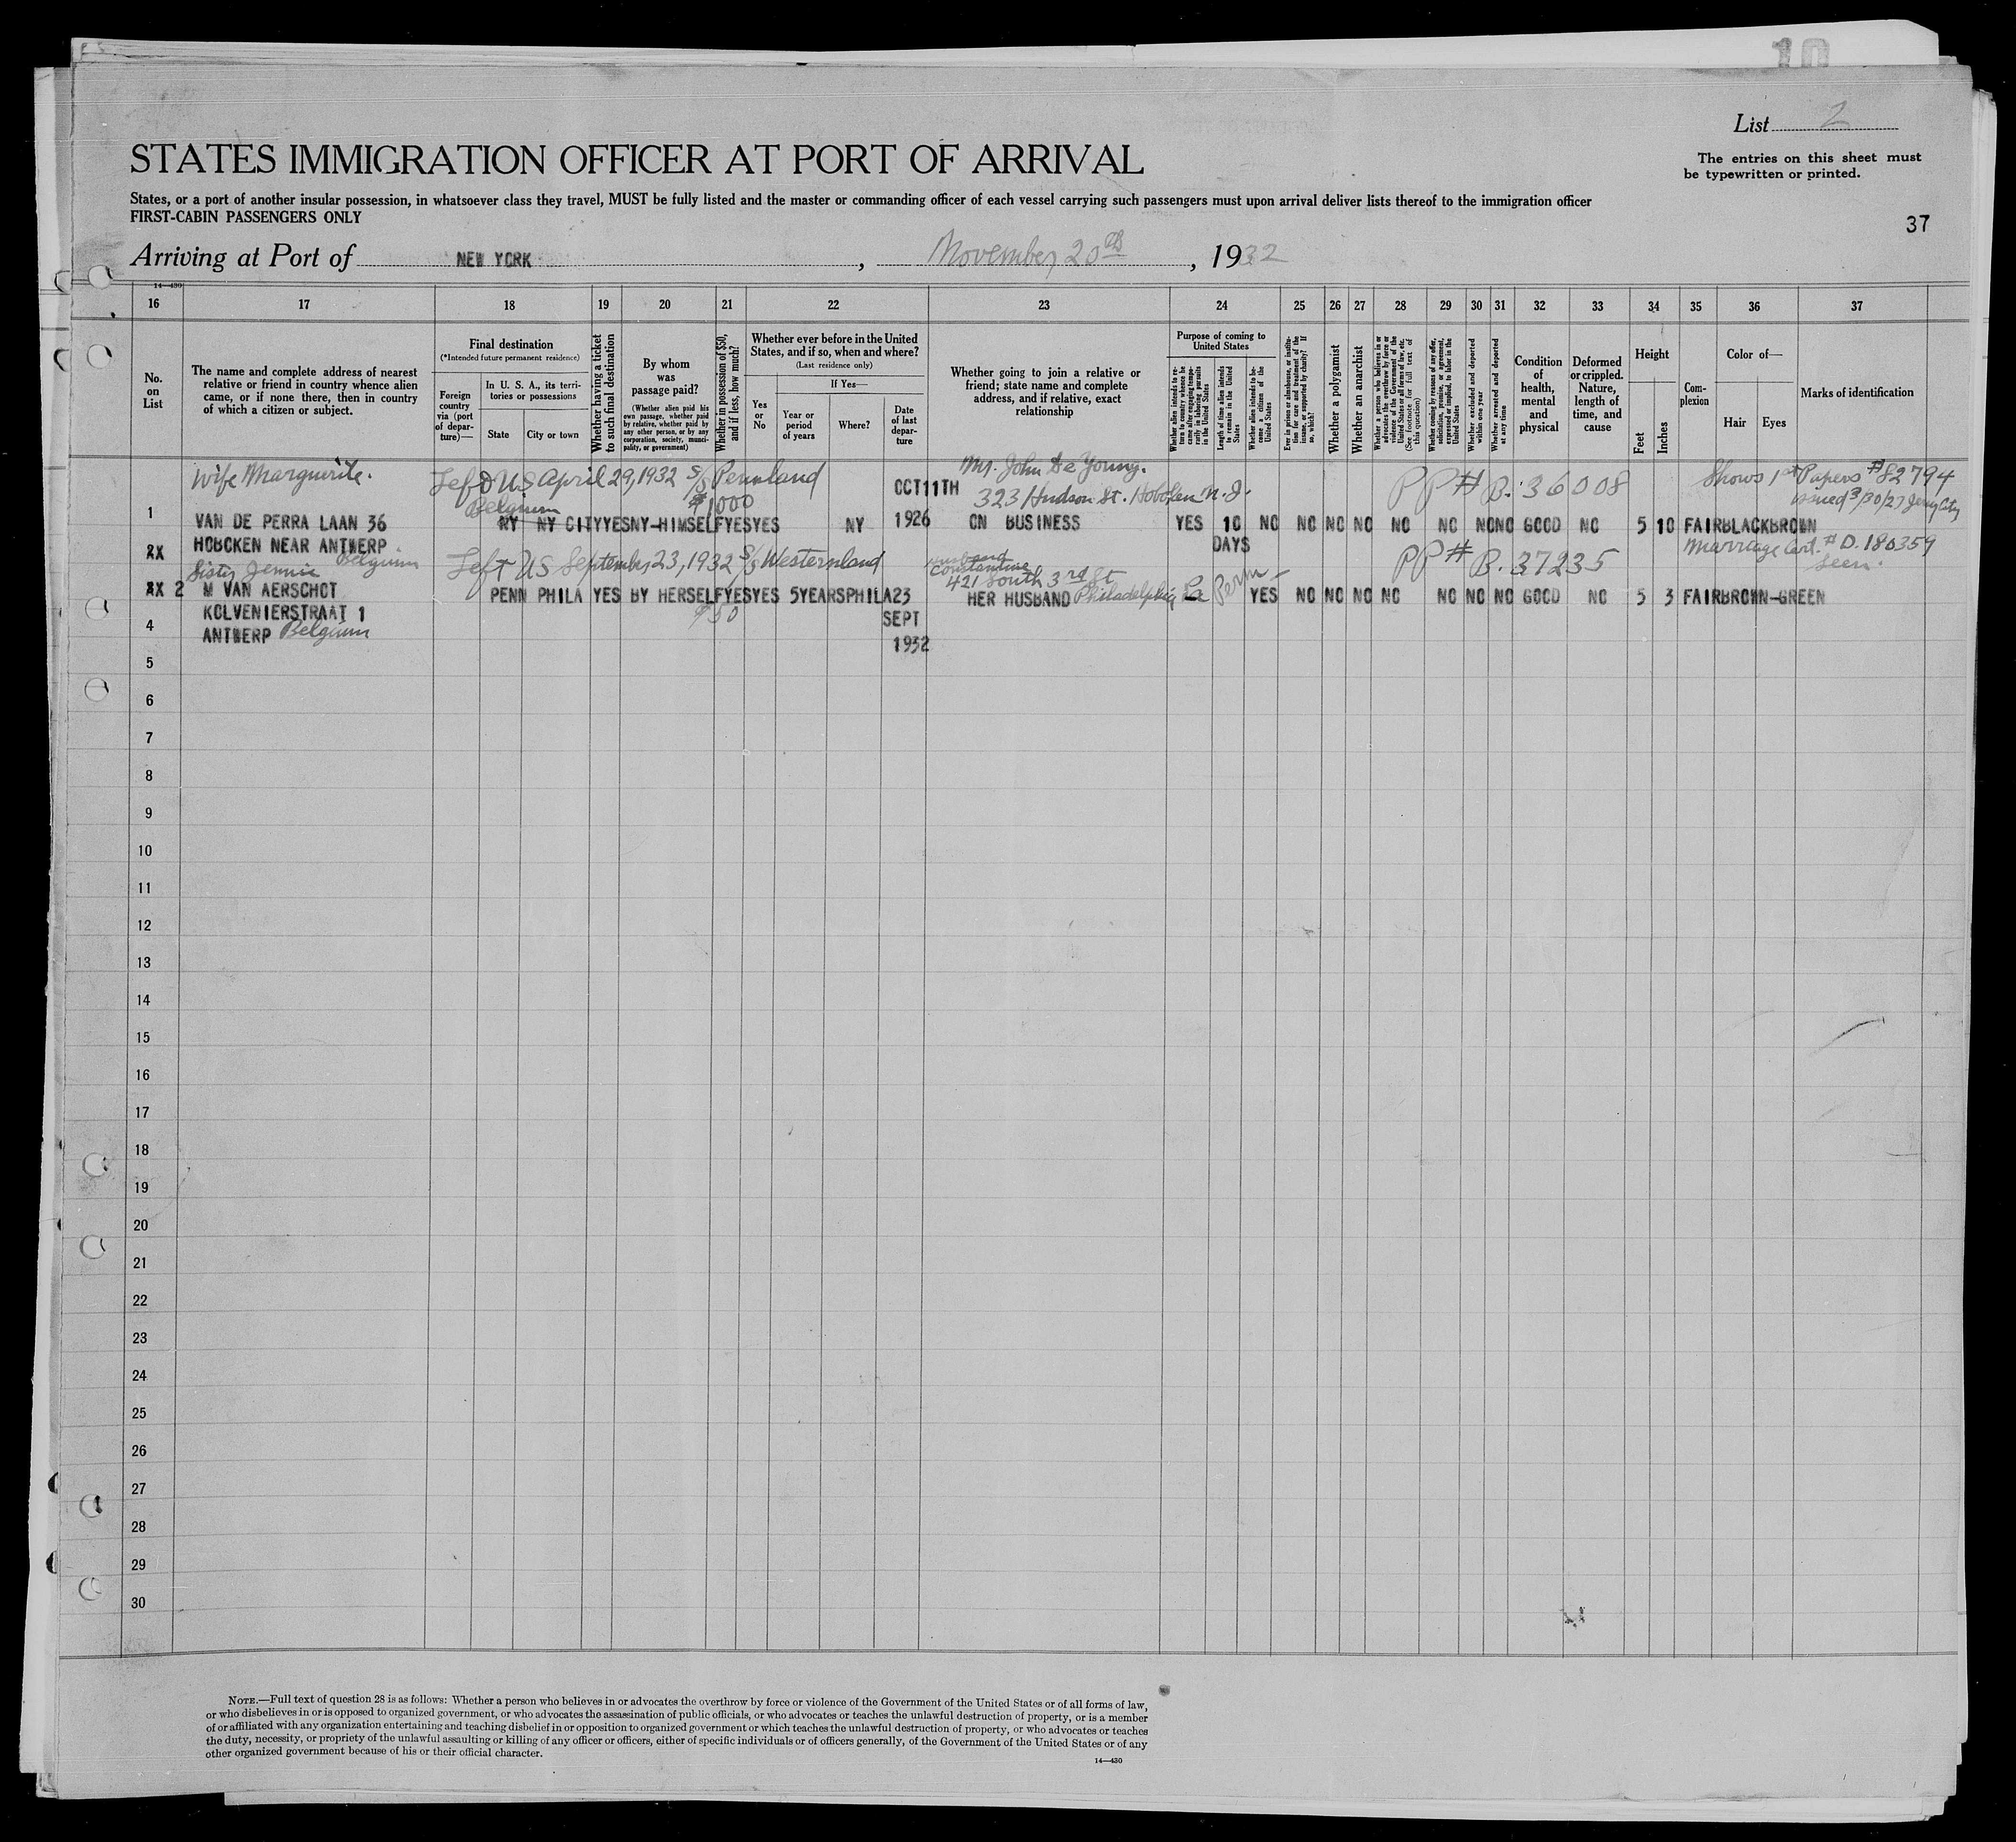 10
List 2
STATES IMMIGRATION OFFICER AT PORT OF ARRIVAL
The entries on this sheet must
be typewritten or printed.
States, or a port of another insular possession, in whatsoever class they travel, MUST be fully listed and the master or commanding officer of each vessel carrying such passengers must upon arrival deliver lists thereof to the immigration officer
FIRST-CABIN PASSENGERS ONLY
37
Arriving at Port of NEW YORK, November 20th, 1932
14—430
16 17 18 19 20 21 22 23 24 25 26 27 28 29 30 31 32 33 34 35 36 37
No. on List
The name and complete address of nearest relative or friend in country whence alien came, or if none there, then in country of which a citizen or subject.
Final destination
(*Intended future permanent residence)
Foreign country via (port of departure)—
In U. S. A., its territories or possessions
State
City or town
Whether having a ticket to such final destination
By whom was passage paid?
(Whether alien paid his own passage, whether paid by relative, whether paid by any other person, or by any corporation, society, municipality, or government)
Whether in possession of $50, and if less, how much?
Whether ever before in the United States, and if so, when and where?
(Last residence only)
Yes or No
If Yes—
Year or period of years
Where?
Date of last departure
Whether going to join a relative or friend; state name and complete address, and if relative, exact relationship
Purpose of coming to United States
Whether alien intends to return to country whence he came after engaging temporarily in laboring pursuits in the United States
Length of time alien intends to remain in the United States
Whether alien intends to become a citizen of the United States
Ever in prison or almshouse, or institution for care and treatment of the insane, or supported by charity? If so, which?
Whether a polygamist
Whether an anarchist
Whether a person who believes in or advocates the overthrow by force or violence of the Government of the United States or all forms of law, etc. (See footnote for full text of this question)
Whether coming by reasons of any offer, solicitation, promise, or agreement, expressed or implied, to labor in the United States
Whether excluded and deported within one year
Whether arrested and deported at any time
Condition of health, mental and physical
Deformed or crippled. Nature, length of time, and cause
Height
Feet
Inches
Complexion
Color of—
Hair
Eyes
Marks of identification
Wife Marguerite. Left US April 29, 1932 S/S Pennland Mr. John De Young. PP# B. 36008 Shows 1st Papers #82794
Belgium $1000 OCT11TH 323 Hudson St. Hoboken N.J. issued 3/30/27 Jersey City
1 VAN DE PERRA LAAN 36 NY NY CITY YES NY-HIMSELF YES YES NY 1926 ON BUSINESS YES 10 NO NO NO NO NO NO NO NO GOOD NO 5 10 FAIR BLACK BROWN
DAYS
HOBOKEN NEAR ANTWERP Belgium Marriage Cert. # D. 180359
Sister Jennie Left US September 23, 1932 S/S Westernland husband Constantine PP# B. 37235 seen.
421 South 3rd St
2 M VAN AERSCHOT PENN PHILA YES BY HERSELF YES YES 5YEARS PHILA 23 HER HUSBAND Philadelphia Pa Perm YES NO NO NO NO NO NO NO GOOD NO 5 3 FAIR BROWN-GREEN
KOLVENIERSTRAAT 1 $50 SEPT
4 ANTWERP Belgium
1932
5
6
7
8
9
10
11
12
13
14
15
16
17
18
19
20
21
22
23
24
25
26
27
28
29
30
NOTE.—Full text of question 28 is as follows: Whether a person who believes in or advocates the overthrow by force or violence of the Government of the United States or of all forms of law,
or who disbelieves in or is opposed to organized government, or who advocates the assassination of public officials, or who advocates or teaches the unlawful destruction of property, or is a member
of or affiliated with any organization entertaining and teaching disbelief in or opposition to organized government or which teaches the unlawful destruction of property, or who advocates or teaches
the duty, necessity, or propriety of the unlawful assaulting or killing of any officer or officers, either of specific individuals or of officers generally, of the Government of the United States or of any
other organized government because of his or their official character.
14—430